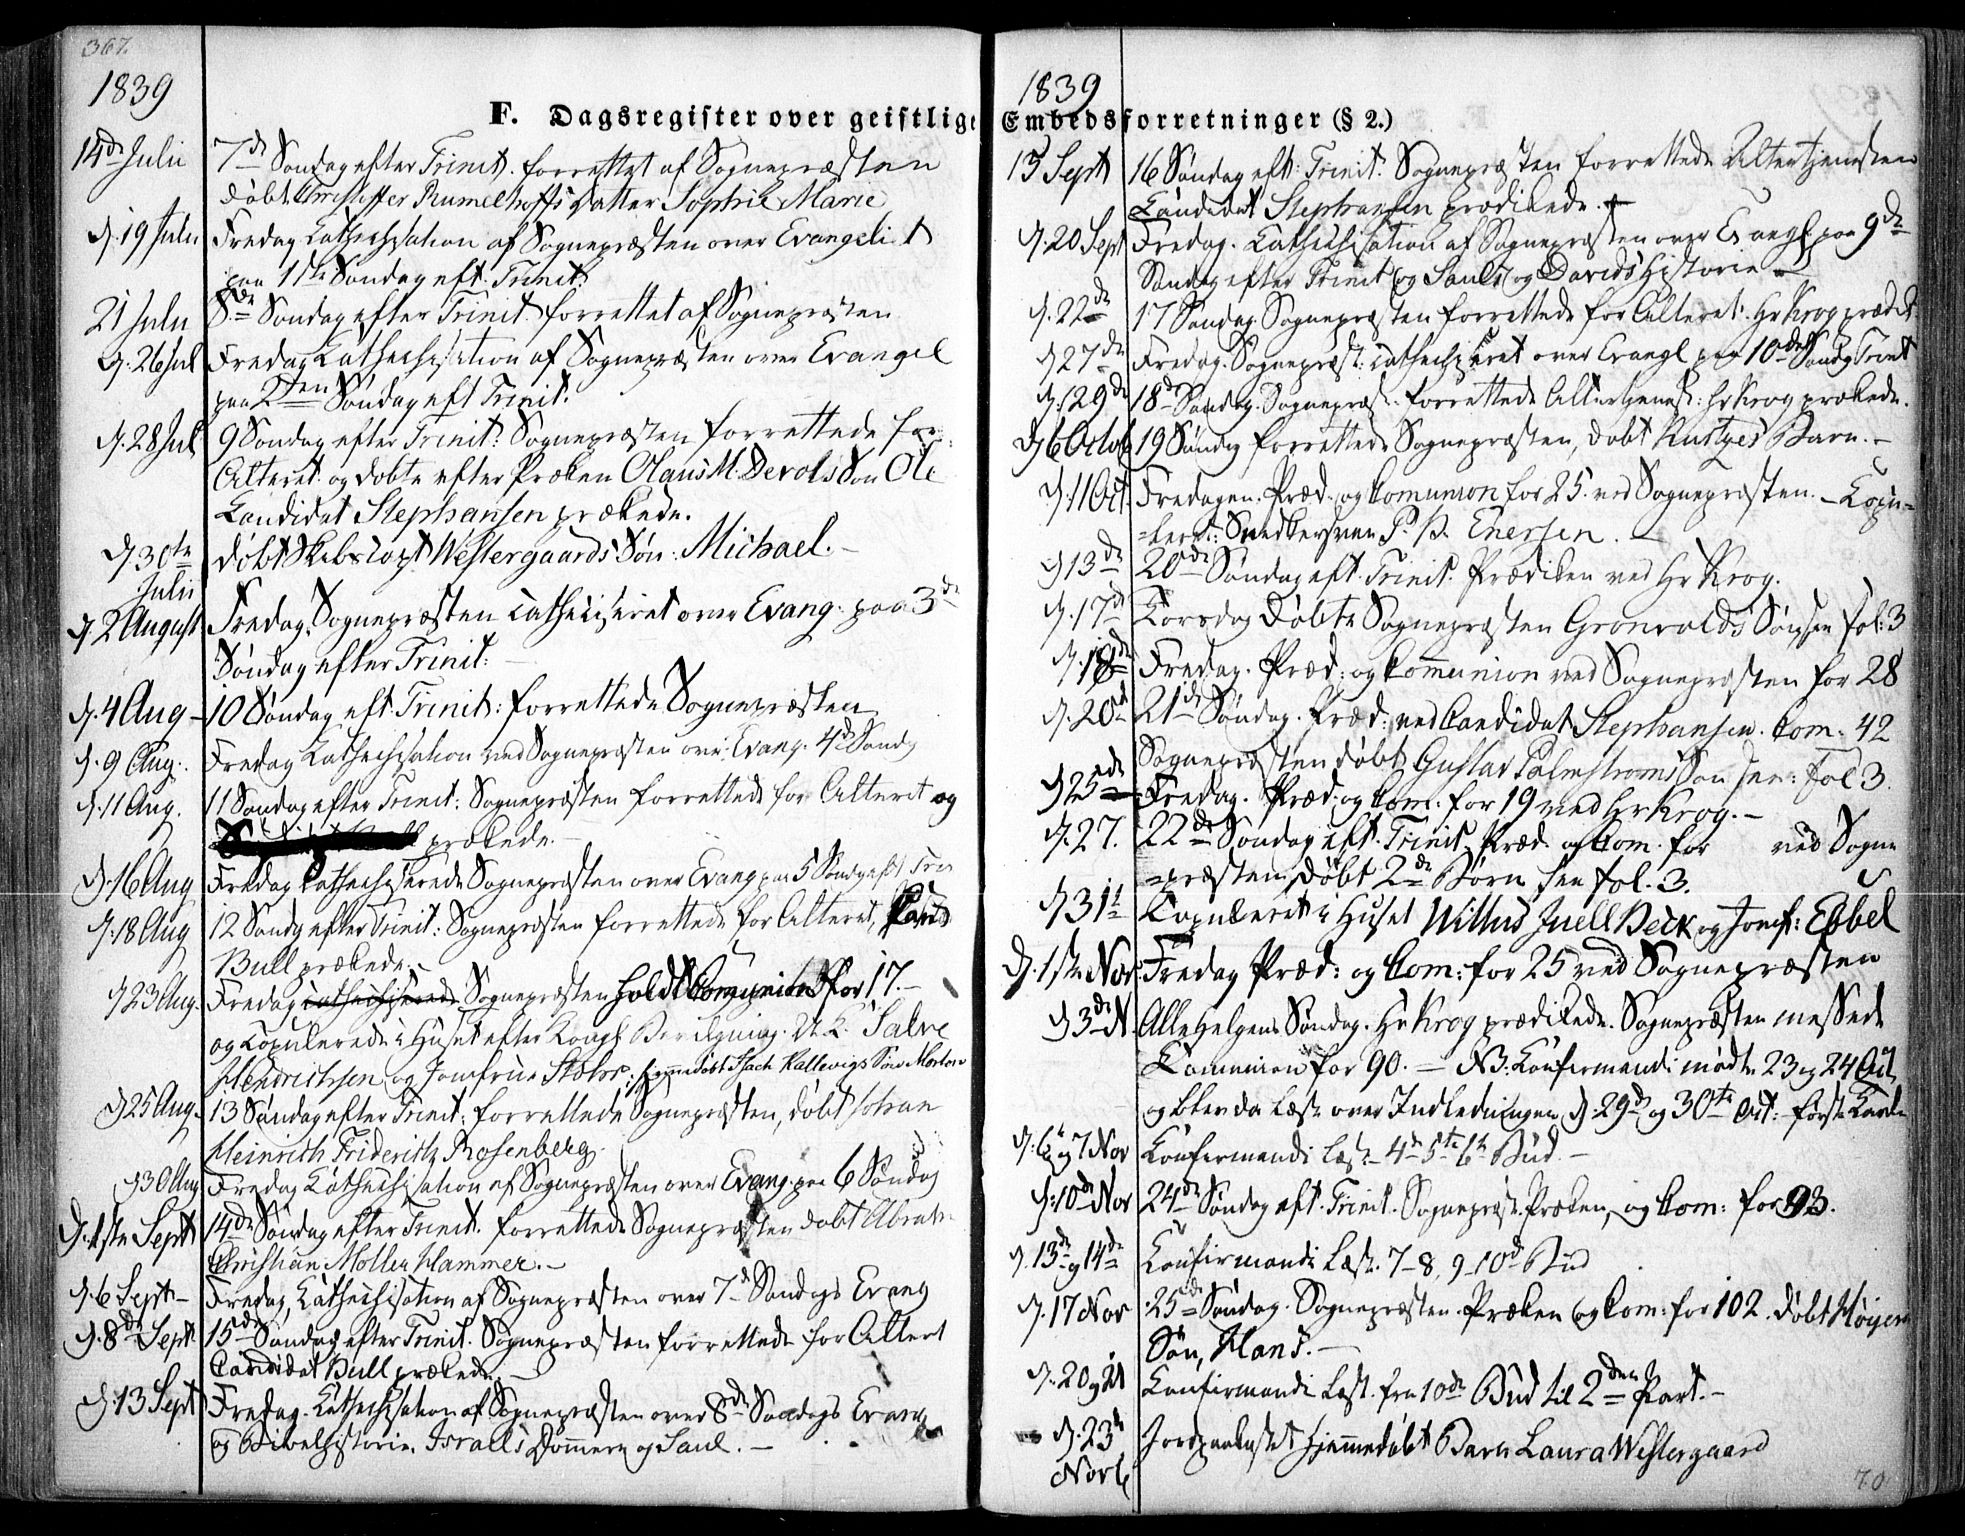 367.
1839
F. Dagsregister over geistlige
14de Julii 7de Søndag efter Trinit. forrettet af Sognepræsten
døbt Christoffer Rumelhoffs Datter Sophie Marie
d. 19 Julii Fredag Cathechisation af Sognepræsten over Evangeliet
paa 1ste Søndag eft. Trinit:
21 Julii 8de Søndag efter Trinit. forrettet af Sognepræsten
d. 26 Jul Fredag Cathechisation af Sognepræsten over Evangel
paa 2den Søndag eft Trinit.
d. 28 Jul 9 Søndag efter Trinit: Sognepræsten forrettede for
Alteret og døbte efter Præken Olaus M. Søn Ole
Candidat Stephansen prækede.
d 30te Julii døbt Westergaards Søn: Michael.
d 2 August Fredag. Sognepræsten Catheciseret over Evang. paa 3de
Søndag efter Trinit:
d. 4 Aug 10 Søndag eft. Trinit: forrettede Sognepræsten
d. 9 Aug. Fredag Cathechisation ved Sognepræsten over Evang. 4de Søndg
d. 11 Aug. 11 Søndag efter Trinit: Sognepræsten forrettede for Alteret og
prækede.
d. 16 Aug Fredag Cathechiserede Sognepræsten over Evang paa 5 Søndg eft Trin
d. 18 Aug 12 Søndg efter Trinit: Sognepræsten forrettede for Alteret, Cand
Bull prækede.
d 23 Aug. Fredag Cathechiserede Sognepræsten holdt Comunion for 17.
og Copulerede i Huset efter Kongl Salve
Hendrichsen og Jomfrue hjemmedøbt Isach Kallevigs Søn Morten
d 25 Aug. 13 Søndag efter Trinit: forrettede Sognepræsten, døbt Johan
Heinrich Friderich Rosenberg.
d 30 Aug Fredag Cathechisation af Sognepræsten over Evang. paa 6 Søndag
d. 1ste Sept 14de Søndag efter Trinit. forrettede Sognepræsten døbt Abrah
Christian Møller Hammer.
d. 6 Sept Fredag, Cathechisation af Sognepræsten over 7de Søndags Evang
d. 8de Sept 15de Søndag efter Trinit. Sognepræsten forrettede for Altert
Candidat Bull prækede.
d. 13 Sept Fredag. Cathechisation af Sognepræsten over 8de Søndags Evang
og Bibelhistorie. Israels Dommere og Saul.
1839
Embedsforretninger (§ 2.)
15 Sept 16 Søndag eft: Trinit. Sognepræsten forrettede Altertjenesten
Candidat Stephansen prædikede.
d. 20 Sept Fredag. Cathechisation af Sognepræsten over Evangl. paa 9de
Søndag efter Trinit og Sauls og Davids Historie
d. 22de 17 Søndag. Sognepræsten forrettede for Alteret. Hr Krog præd
d 27de Fredag. Sognepræst: Cathechiseret over Evangl paa 10de Søndg Trint
d. 29de 18de Søndag. Sognepræst. forrettede Altertjenest: Hr Krog prækede.
d 6 Octob 19 Søndag forrettede Sognepræsten, døbt Barn.
d. 11 Oct. Fredagen. Præd. og Comunion for 25 ved Sognepræsten. Copu-
leret: Snedkersven P. P. Enersen.
d 13de 20de Søndag eft. Trinit. Prædiken ved Hr Krog.
d. 17de Torsdag Døbte Sognepræsten Grønvolds Søn see fol: 3
d. 18de Fredag. Præd: og Communion ved Sognepræsten for 28
d. 20de 21de Søndag. Præd: ved Candidat Stephansen. Com. 42
Sognepræsten døbt Gustav Palmstrøms Søn see: Fol 3.
d 25de Fredag. Præd: og Com. for 19 ved Hr Krog.
d. 27. 22de Søndag eft. Trinit. Præd. og Com. for ved Sogne
præsten, døbt 2de Børn see fol. 3.
d 31te Copuleret i Huset Juell Beck og Jomf: Ebbel
d. 1ste Nov Fredag Præd: og Com: for 25 ved Sognepræsten
d 3de N. Alle Helgens Søndag. Hr Krog prædikede. Sognepræsten messede
Comunion for 90. NB: Confirmandi mødte 23 og 24 Oct
og blev da læst over Indledningen d. 29de og 30te Oct: første
d. 6 og 7 Nov Confirmandi læst 4de 5te 6te Bud.
d. 10de Nov 24de Søndag eft. Trinit. Sognepræst. Præken, og Com: for 93.
d. 13de og 14de Confirmandi læst. 7-8, 9-10de Bud
d. 17 Nov 25de Søndag. Sognepræsten. Præken og Com: for 102. døbt
Søn, Hans.
d. 20 og 21 Confirmandi læst. fra 10de Bud til 2den Part.
d. 23de Novb Jordpaakastet hjemmedøbt Barn Laura Westergaard
70